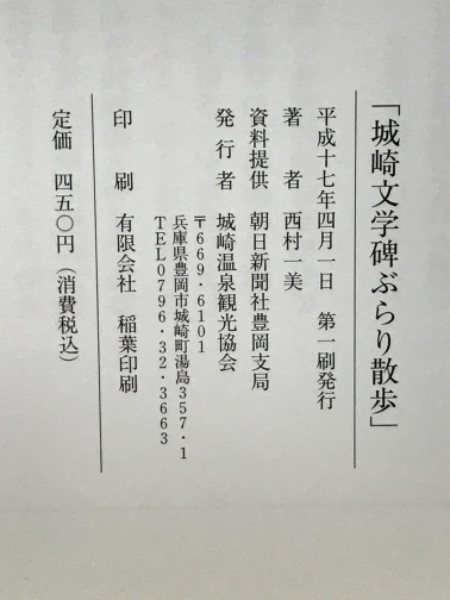 「城崎文学碑ぶらり散歩」
平成十七年四月一日　第一刷発行
著　者　西村一美
資料提供　朝日新聞社豊岡支局
発行者　城崎温泉観光協会
〒669・6101
兵庫県豊岡市城崎町湯島357・1
TEL0796・32・3663
印　刷　有限会社　稲葉印刷
定価　四五〇円（消費税込）